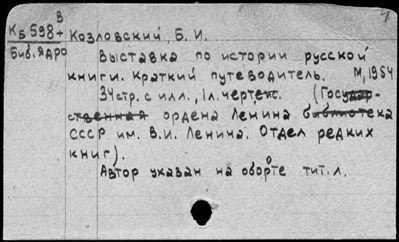 В
КБ 598+ Козловский, Б. И.
Биб. Ядро
Выставка по истории русской
книги. Краткий путеводитель. М, 1954
34 стр. с илл., 1 л. чертеж. (Государ-
ственная ордена Ленина библиотека
СССР им. В.И. Ленина. Отдел редких
книг).
Автор указан на обороте тит. л.